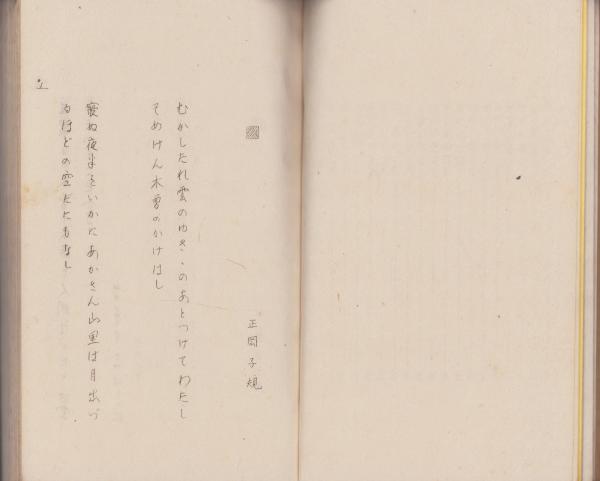 正岡子規
むかしたれ雲のゆきゝのあとつけてわたし
そめけん木曽のかけはし
寝ぬ夜半をいかにあかさん山里は月出づ
るほどの空だにもなし